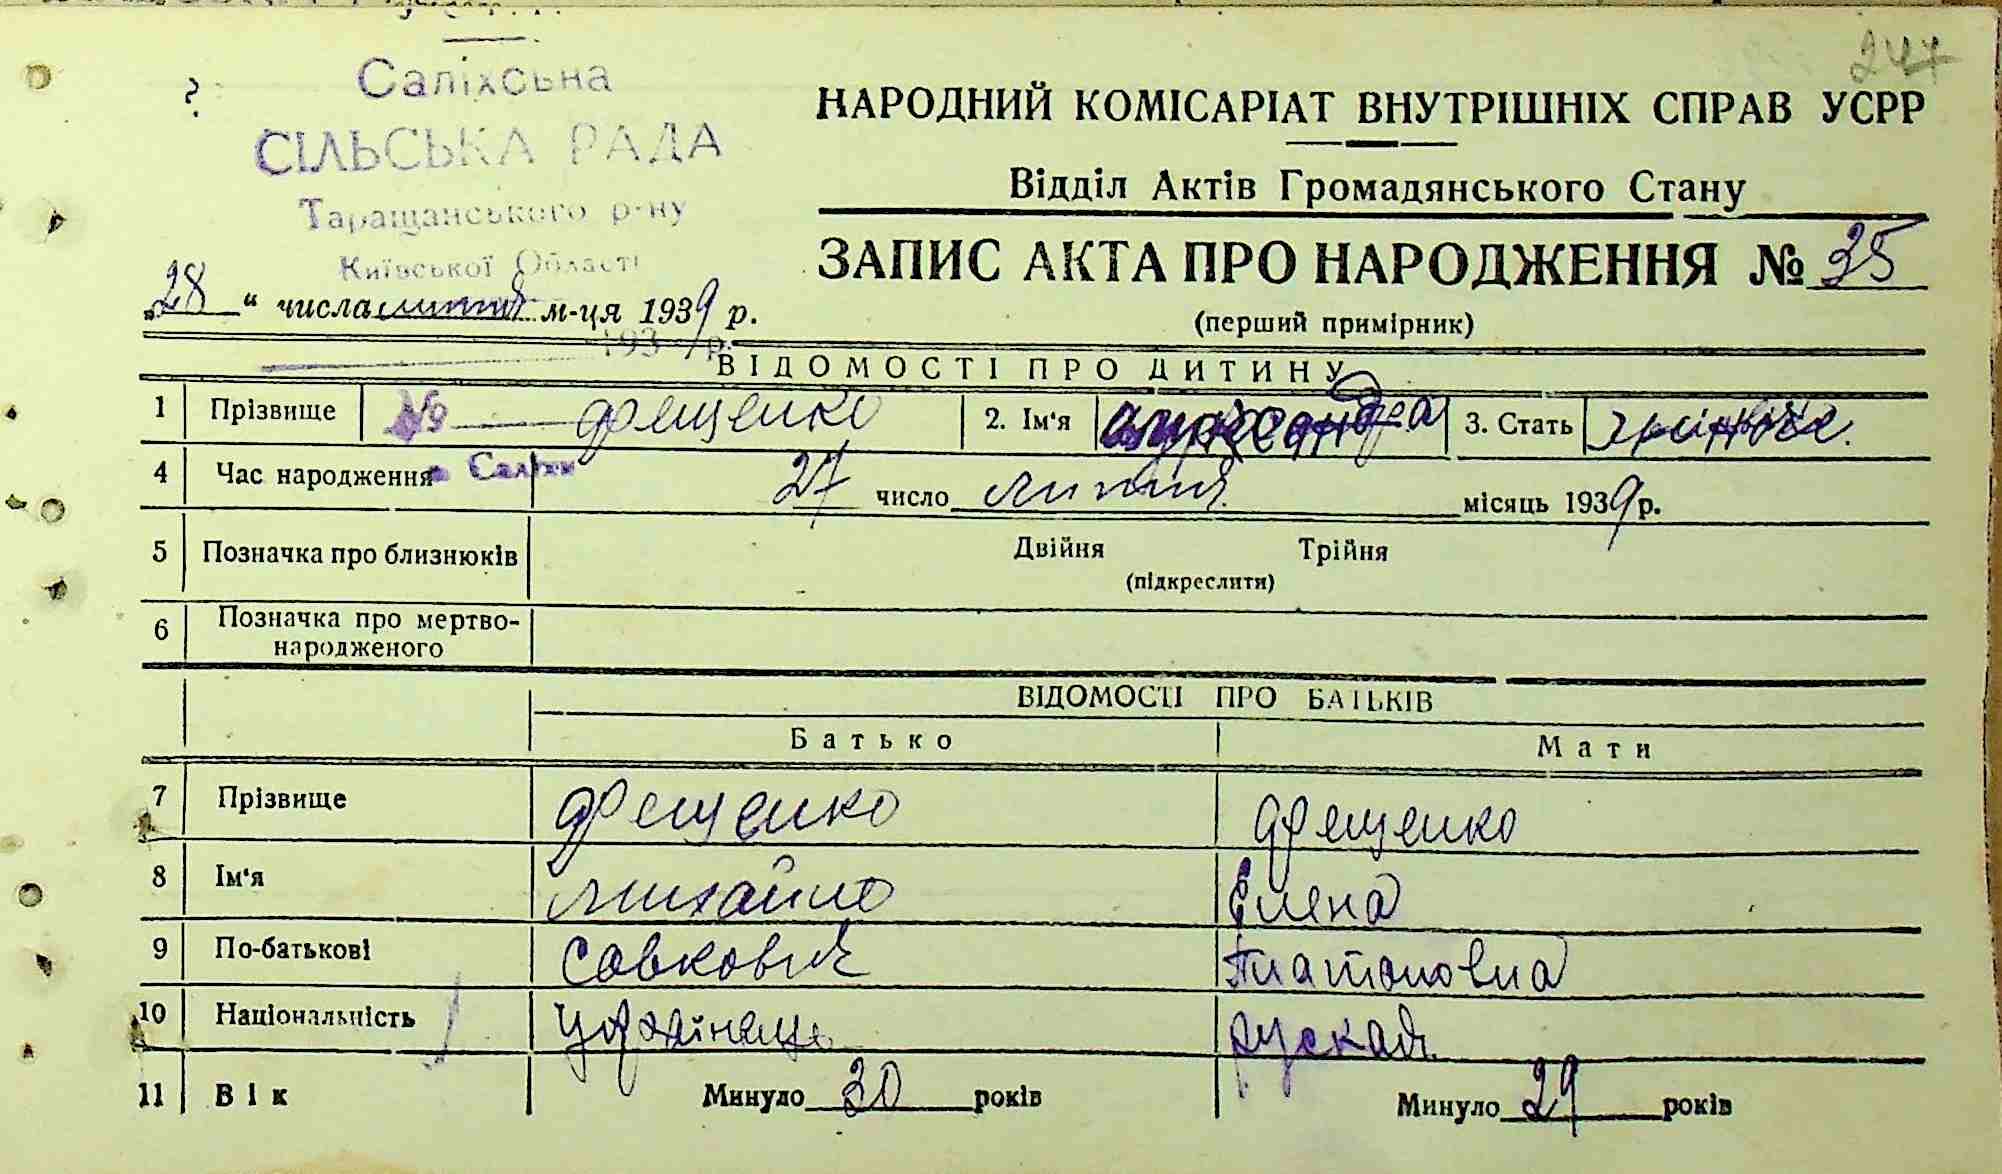 247
Саліхська
СІЛЬСЬКА РАДА
Таращанського р-ну
Київської Області
193 р.
№
с. Саліхи
НАРОДНИЙ КОМІСАРІАТ ВНУТРІШНІХ СПРАВ УСРР
Відділ Актів Громадянського Стану
ЗАПИС АКТА ПРО НАРОДЖЕННЯ № 35
(перший примірник)
„28“ числа липня м-ця 1939 р.
ВІДОМОСТІ ПРО ДИТИНУ
1 Прізвище Фещенко 2. Ім'я Александра 3. Стать жіноча.
4 Час народження 27 число липня місяць 1939 р.
5 Позначка про близнюків Двійня Трійня
(підкреслити)
6 Позначка про мертво-
народженого
ВІДОМОСТІ ПРО БАТЬКІВ
Батько Мати
7 Прізвище Фещенко Фещенко
8 Ім'я Михайло Елена
9 По-батькові Савкович Платоновна
10 Національність Українець Руская
11 Вік Минуло 30 років Минуло 29 років